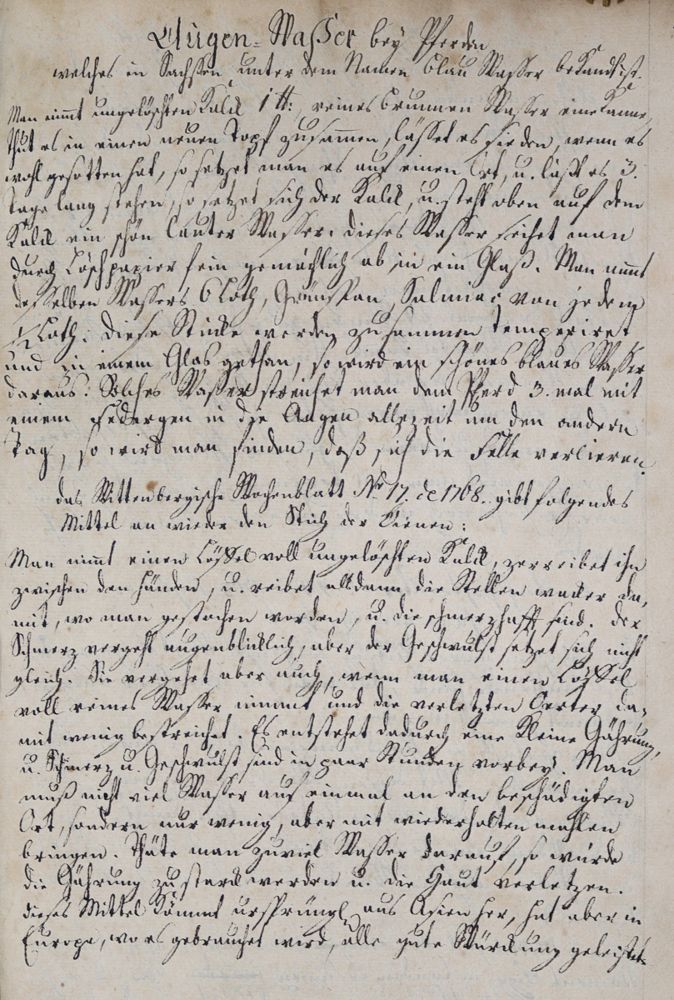 Augen-Wasser bey Pferden
welches in Sachsen unter dem Namen blau Wasser bekandt ist.
Man nimmt ungelöschten Kalck 1 ℔: reines brunnen Wasser eine Kanne,
thut es in einen neuen Topf zusammen, lässet es sieden, wenn es
wohl gesotten hat, so setzet man es auf einen Ort, u. läßt es 3.
Tage lang stehen, so setzet sich der Kalck, u. steht oben auf dem
Kalck ein schön lauter Wasser: dieses Wasser seihet man
durch Löschpapier fein gemächlich ab in ein Glaß. Man nimmt
desselben Wassers 6 Loth, Grünspan, Salmiac von jedem
1/2 Loth: diese Stücke werden zusammen temperiret
und in einem Glas gethan, so wird ein schönes blaues Wasser
daraus. Solches Wasser streichet man dem Pferd 3. mal mit
einem Federgen in die Augen allezeit um den andern
Tag, so wird man finden, daß sich die Felle verlieren.
das Wittenbergische Wochenblatt No 17. de 1768. gibt folgendes
Mittel an wieder den Stich der Bienen:
Man nimt einen Löffel voll ungelöschten Kalck, zerreibet ihn
zwischen den Händen, u. reibet alsdann die Stellen wacker da,
mit, wo man gestochen worden, u. die schmerzhafft sind. der
Schmerz vergeht augenblicklich, aber der Geschwulst setzet sich nicht
gleich. Sie vergehet aber auch, wenn man einen Löffel
voll reines Wasser nimmt und die verletzten Oerter da-
mit wenig bestreichet. Es entstehet dadurch eine kleine Gährung,
u. Schmerz u. Geschwulst sind in paar Stunden vorbey. Man
muß nicht viel Wasser auf einmal an den beschädigten
Ort, sondern nur wenig, aber mit wiederholten mahlen
bringen. Thäte man zuviel Wasser darauf, so würde
die Gährung zu starck werden u. die Haut verletzen.
dieses Mittel kömmt ursprüngl. aus Asien her, hat aber in
Europa, wo es gebrauchet wird, alle gute Würckung geleistet.